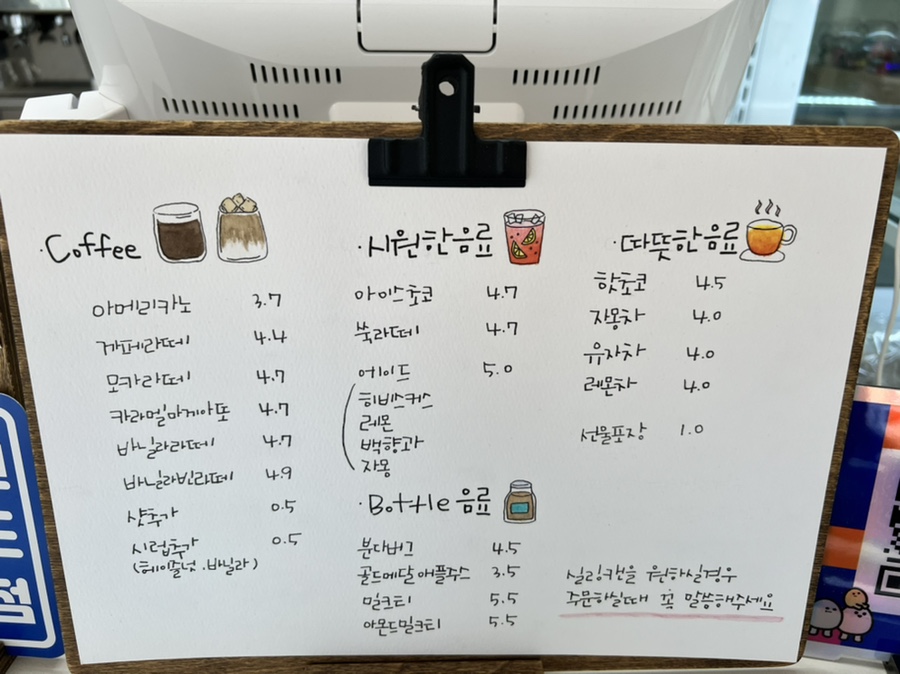 ·Coffee
아메리카노 3.7
카페라떼 4.4
모카라떼 4.7
카라멜마끼아또 4.7
바닐라라떼 4.7
바닐라빈라떼 4.9
샷추가 0.5
시럽추가 0.5
(헤이즐넛.바닐라)
·시원한음료
아이스초코 4.7
쑥라떼 4.7
에이드 5.0
히비스커스
레몬
백향과
자몽
·Bottle 음료
분다버그 4.5
골드메달애플주스 3.5
밀크티 5.5
아몬드밀크티 5.5
·따뜻한음료
핫초코 4.5
자몽차 4.0
유자차 4.0
레몬차 4.0
선물포장 1.0
실링캔을 원하실경우
주문하실때 꼭 말씀해주세요